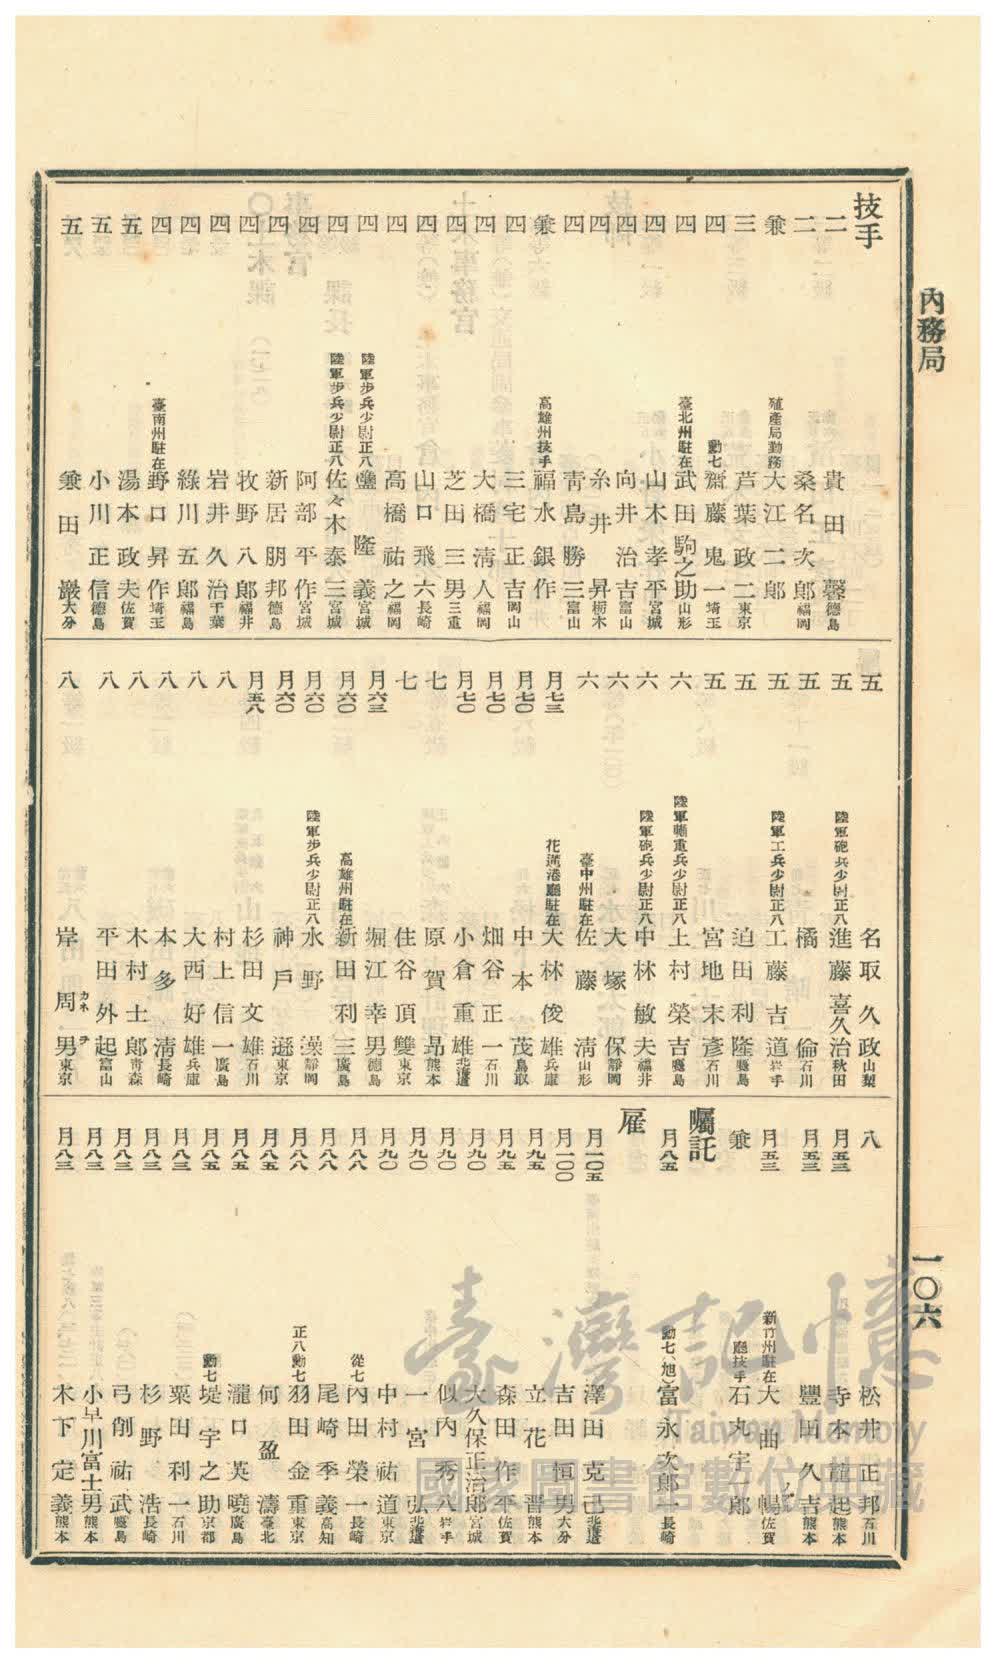 內務局
一〇六
技手
二 貴田馨 德島
二 桑名次郎 福岡
兼 殖產局勤務 大江二郎
三 芦葉政二 東京
四 勳七 齋藤鬼一 埼玉
四 臺北州駐在 武田駒之助 山形
四 山木孝平 宮城
四 向井治吉 富山
四 糸井昇 栃木
四 靑島勝三 富山
兼 高雄州技手 福永銀作
四 三宅正吉 岡山
四 大橋淸人 福岡
四 芝田三男 三重
四 山口飛六 長崎
四 高橋祐之 福岡
四 陸軍步兵少尉正八 隆義 宮城
四 陸軍步兵少尉正八 佐々木泰三 宮城
四 阿部平作 宮城
四 新居朋邦 德島
四 牧野八郎 福井
四 岩井久治 千葉
四 綠川五郎 福島
四 臺南州駐在 野口昇作 埼玉
五 湯本政夫 佐賀
五 小川正信 德島
五 兼田巖 大分
五 名取久政 山梨
五 陸軍砲兵少尉正八 進藤喜久治 秋田
五 橘倫 石川
五 陸軍工兵少尉正八 工藤吉道 岩手
五 迫田利隆 鹿島
五 宮地末彥 石川
六 陸軍輜重兵少尉正八 上村榮吉 鹿島
六 陸軍砲兵少尉正八 中林敏夫 福井
六 大塚保 靜岡
六 臺中州駐在 佐藤淸 山形
月七三 花蓮港廳駐在 大林俊雄 兵庫
月七〇 中本茂 鳥取
月七〇 畑谷正一 石川
月七〇 小倉重雄 北海道
七 原賀昻 熊本
七 住谷頂雙 東京
月六三 堀江幸男 德島
月六〇 高雄州駐在 新田利三 廣島
月六〇 陸軍步兵少尉正八 水野 靜岡
月六〇 神戶遜 東京
月五八 杉田文雄 石川
八 村上信一 廣島
八 大西好雄 兵庫
八 本多淸 長崎
八 木村士郎 靑森
八 平田外起 富山
八 岸周男 カネヲ 東京
八 松井正邦 石川
月五三 寺本龍起 熊本
月五三 豐田久吉 熊本
月五三 新竹州駐在 大曲暢 佐賀
兼 廳技手 石丸宇郎
囑託
月八五 勳七(旭) 富永次郎一 長崎
雇
月一〇五 澤田克己 北海道
月一〇〇 吉田恒男 大分
月九五 立花晋 熊本
月九五 森田作平 佐賀
月九〇 大久保正治郎 宮城
月九〇 似內秀八 岩手
月九〇 一宮弘 北海道
月九〇 中村祐道 東京
月八八 從七 內田榮一 長崎
月八八 尾崎季義 高知
月八八 正八勳七 羽田金重 東京
月八五 何盈濤 臺北
月八五 瀧口英曉 廣島
月八五 勳七 堤宇之助 京都
月八三 粟田利一 石川
月八三 杉野浩 長崎
月八三 弓削祐武 鹿島
月八三 小早川富士男 熊本
月八三 木下定義 熊本
臺灣記憶
Taiwan Memory
國家圖書館數位典藏